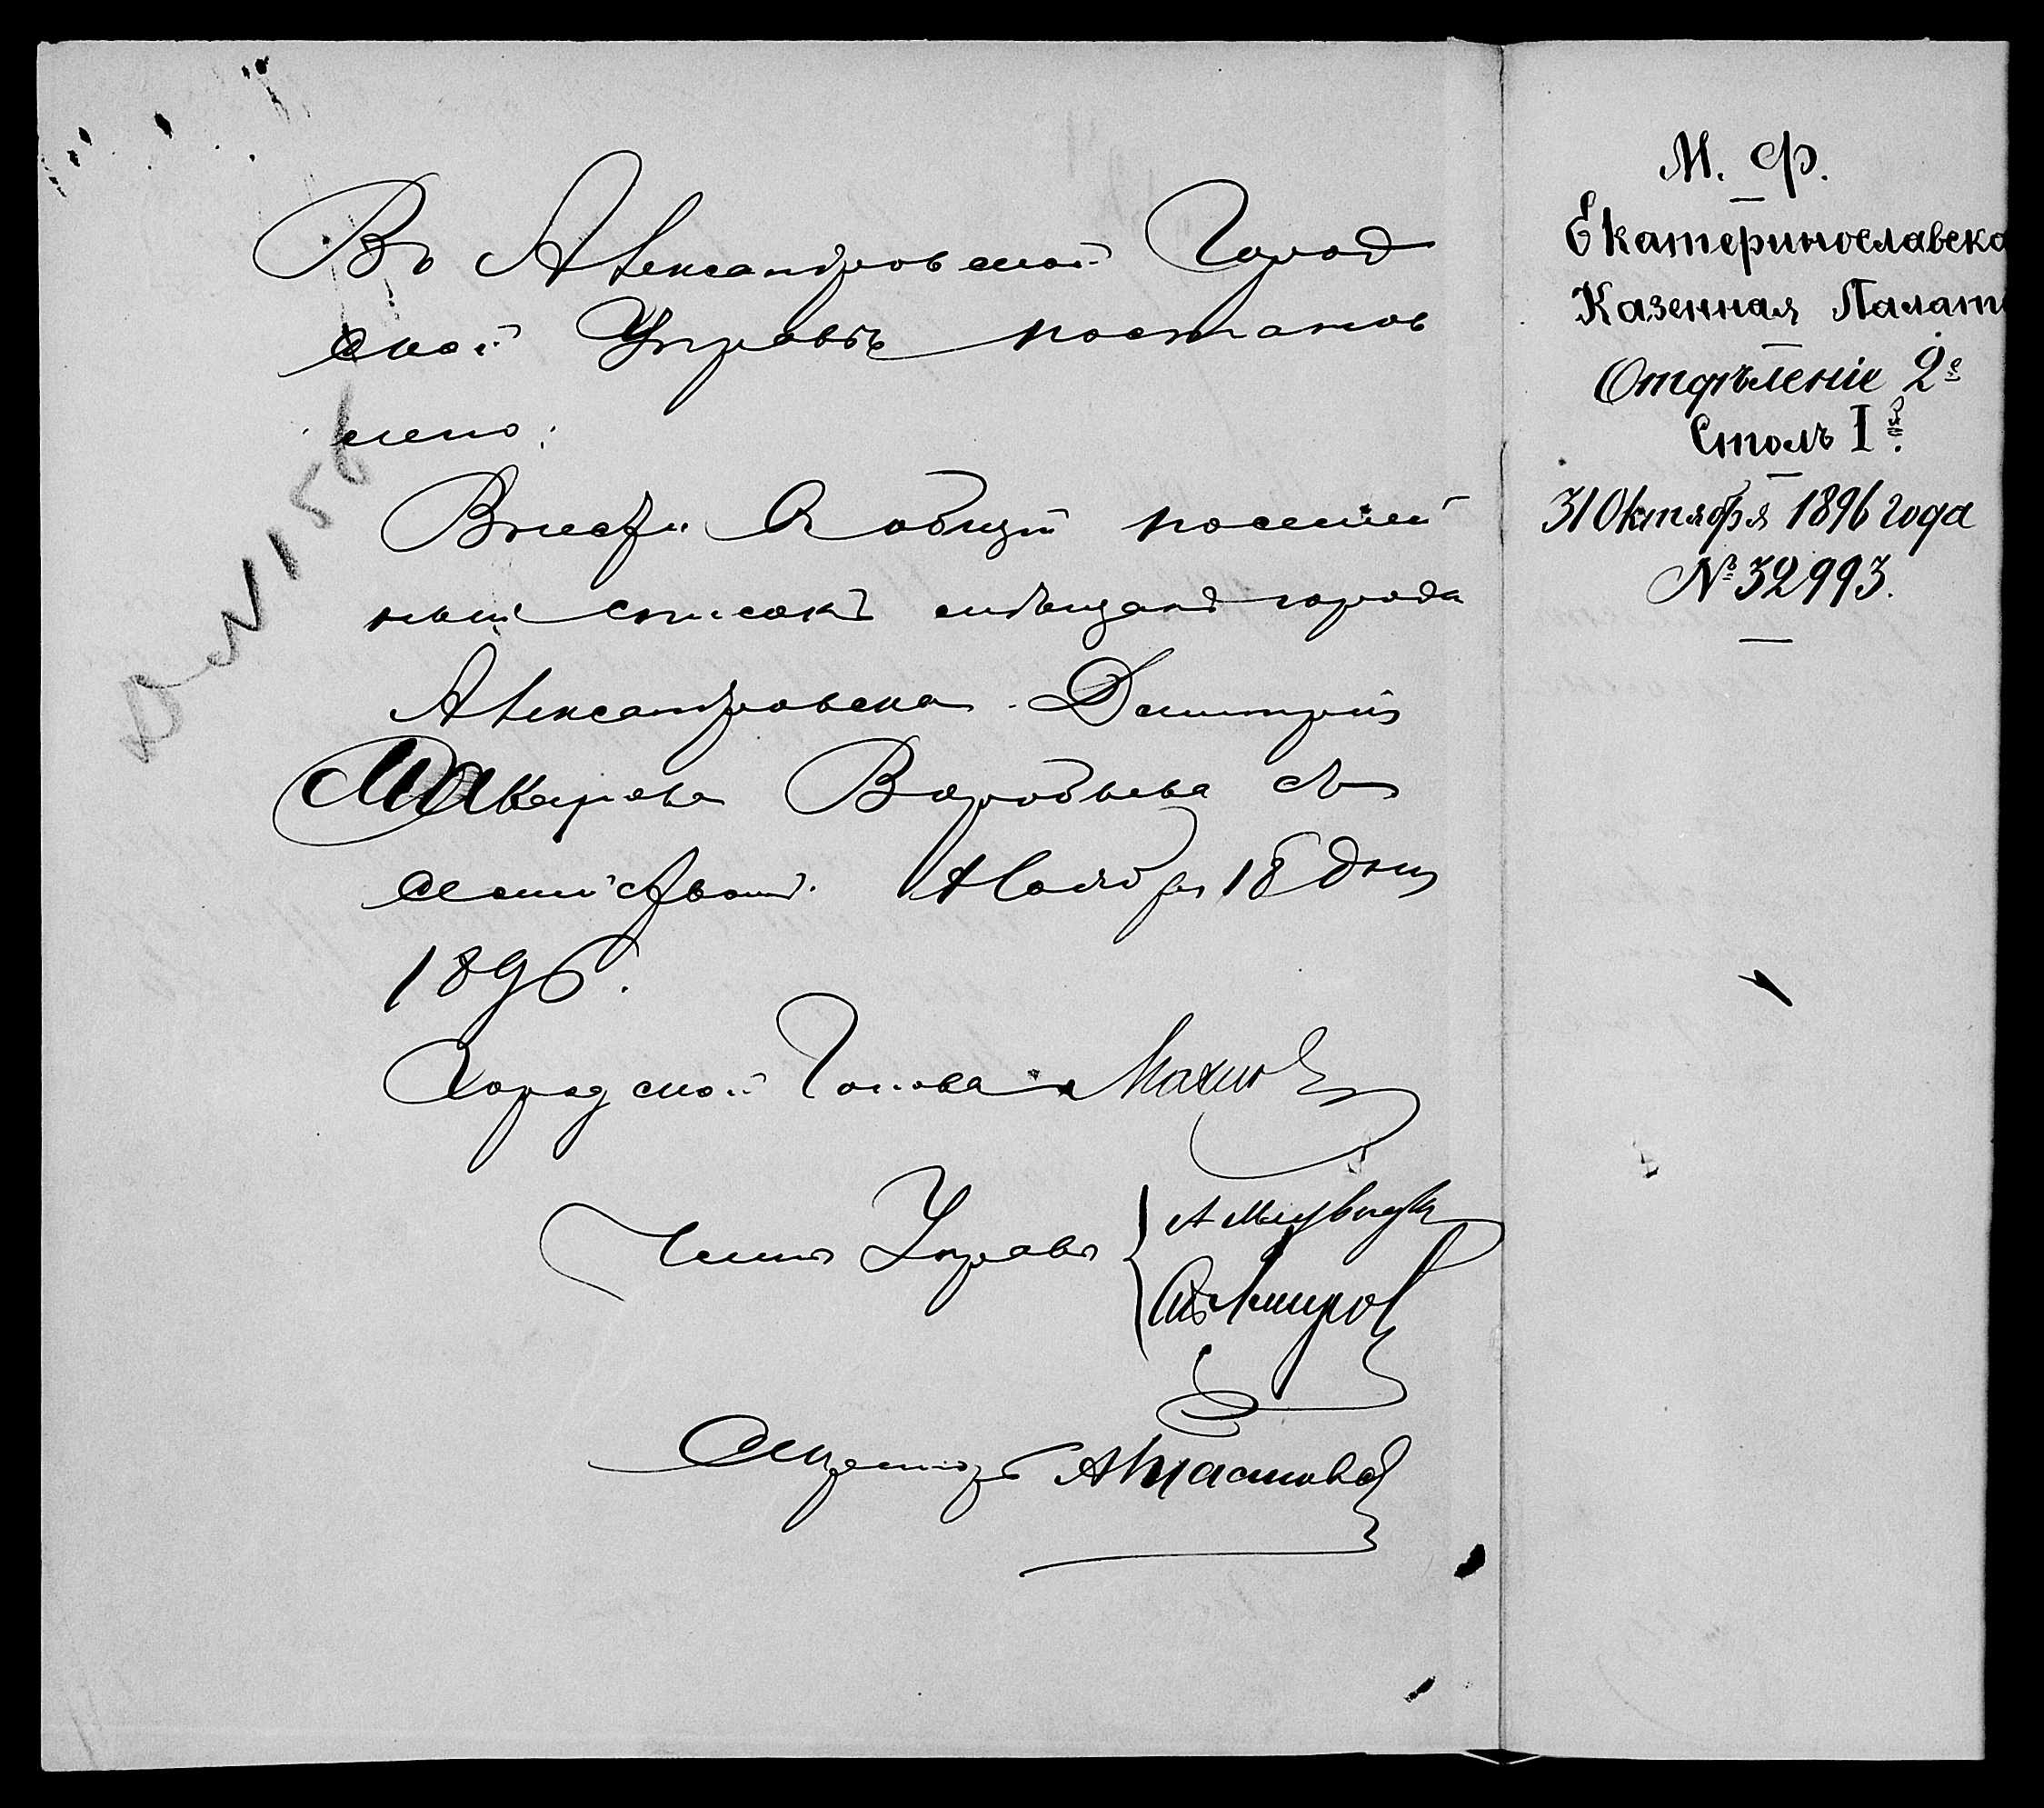 Въ Александровской Город
ской Управѣ постанов
лено:
Внести в общій посемей
ный списокъ мѣщанъ города
Александровска Дмитрія
Макарова Воробьева съ
семействомъ. Ноября 18 дня
1896.
Городской Голова
Члены Управы
А Медведев
Секретарь
D N 156
М. Ф.
Екатеринославска
Казенная Палат
Отдѣленіе 2е
Столъ Iй.
31 Октября 1896 года
№ 32993.